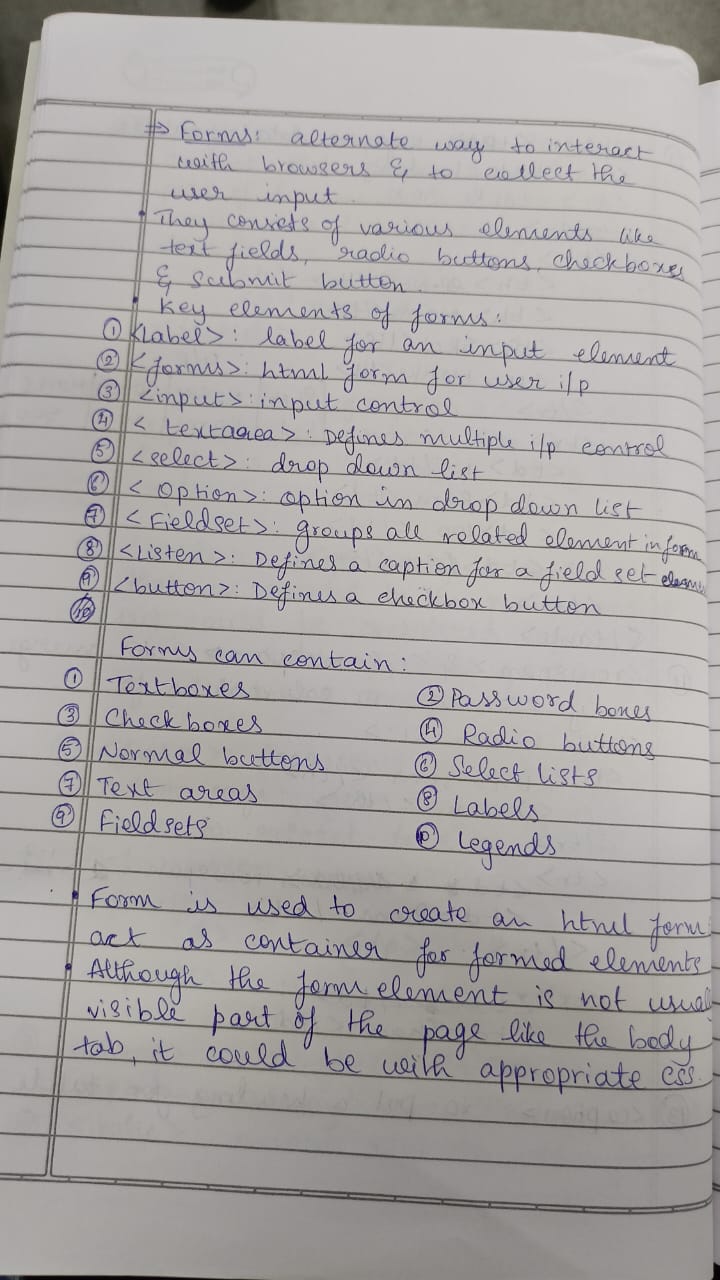 ⇒ Forms: alternate way to interact
with browsers & to collect the
user input.
• They consets of various elements like
text fields, radio buttons, checkboxes
& submit button.
• Key elements of forms:
① <Label>: label for an input element
② <forms>: html form for user i/p
③ <input>: input control
④ < textarea>: Defines multiple i/p control
⑤ <select>: drop down list
⑥ < Option>: option in drop down list
⑦ < Fieldset>: groups all related element in form
⑧ <Listen>: Defines a caption for a field set
⑨ <button>: Defines a checkbox button
⑩
Forms can contain:
① Textboxes ② Password boxes
③ Check boxes ④ Radio buttons
⑤ Normal buttons ⑥ Select lists
⑦ Text areas ⑧ Labels
⑨ Fieldsets ⑩ Legends
• Form is used to create an html form
act as container for formed elements
• Although the form element is not usual
visible part of the page like the body
tab, it could be with appropriate css.